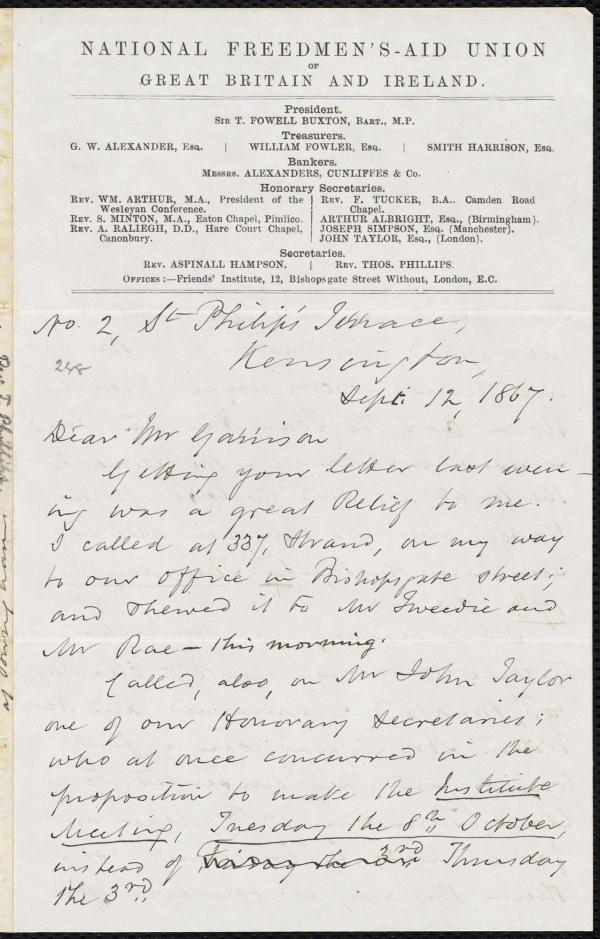 NATIONAL FREEDMEN'S-AID UNION
OF
GREAT BRITAIN AND IRELAND.
President.
SIR T. FOWELL BUXTON, BART., M.P.
Treasurers.
G. W. ALEXANDER, ESQ. | WILLIAM FOWLER, ESQ. | SMITH HARRISON, ESQ.
Bankers.
MESSRS. ALEXANDERS, CUNLIFFES & Co.
Honorary Secretaries.
REV. WM. ARTHUR, M.A., President of the
Wesleyan Conference.
REV. S. MINTON, M.A., Eaton Chapel, Pimlico.
REV. A. RALIEGH, D.D., Hare Court Chapel,
Canonbury.
REV. F. TUCKER, B.A.. Camden Road
Chapel.
ARTHUR ALBRIGHT, Esq., (Birmingham).
JOSEPH SIMPSON, Esq. (Manchester).
JOHN TAYLOR, Esq., (London).
Secretaries.
REV. ASPINALL HAMPSON. | REV. THOS. PHILLIPS.
OFFICES:—Friends' Institute, 12, Bishopsgate Street Without, London, E.C.
No. 2, St Philip's Terrace,
Kensington,
248
Sept. 12, 1867.
Dear Mr Garrison
Getting your letter last even-
ing was a great Relief to me.
I called at 337, Strand, on my way
to our office in Bishopsgate street;
and shewed it to Mr Tweedie and
Mr Rae – this morning.
Called, also, on Mr John Taylor
one of our Honorary Secretaries;
who at once concurred in the
proposition to make the Institute
Meeting, Tuesday the 8th October,
instead of Friday the 3rd Thursday
the 3rd